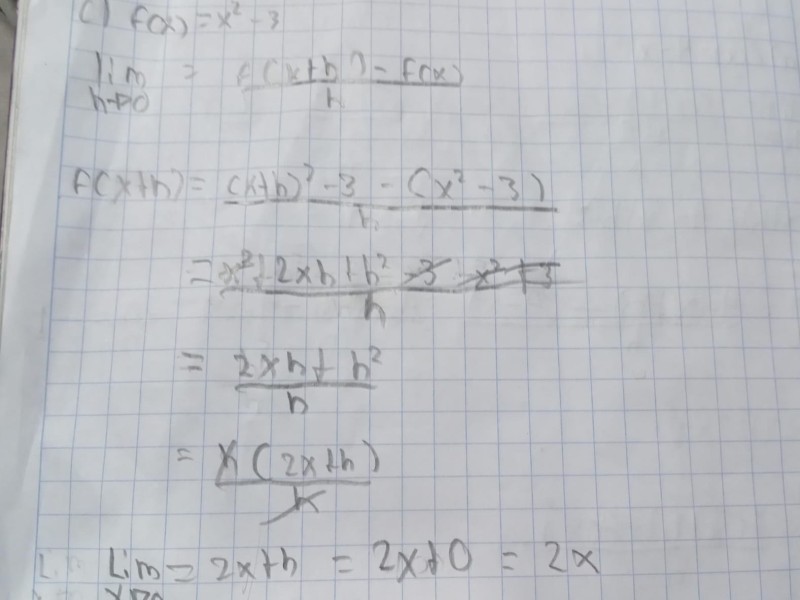 c) f(x) = x² - 3
lim h→0 = f(x+h) - f(x) / h
f(x+h) = (x+h)² - 3 - (x² - 3) / h
= x² + 2xh + h² - 3 - x² + 3 / h
= 2xh + h² / h
= h (2x+h) / h
Lim = 2x+h = 2x+0 = 2x